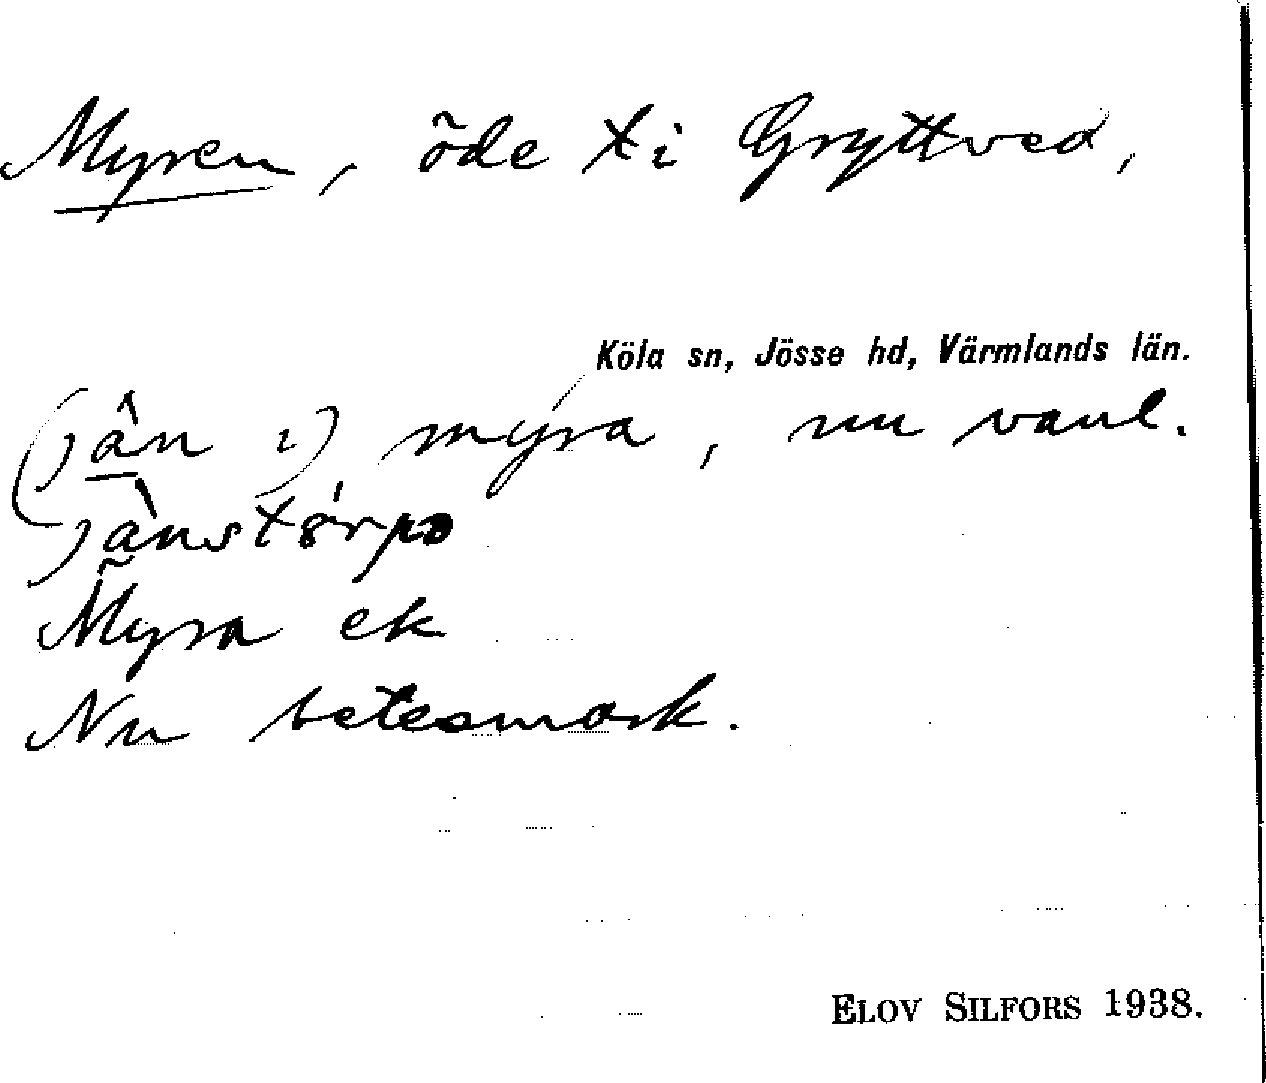 Myren, öde t i Gryttved,
Köla sn, Jösse hd, Värmlands län.
(jân ɩ) mýra, nu vanl.
jànstórpə
Myra ek
Nu betesmark.
ELOV SILFORS 1938.